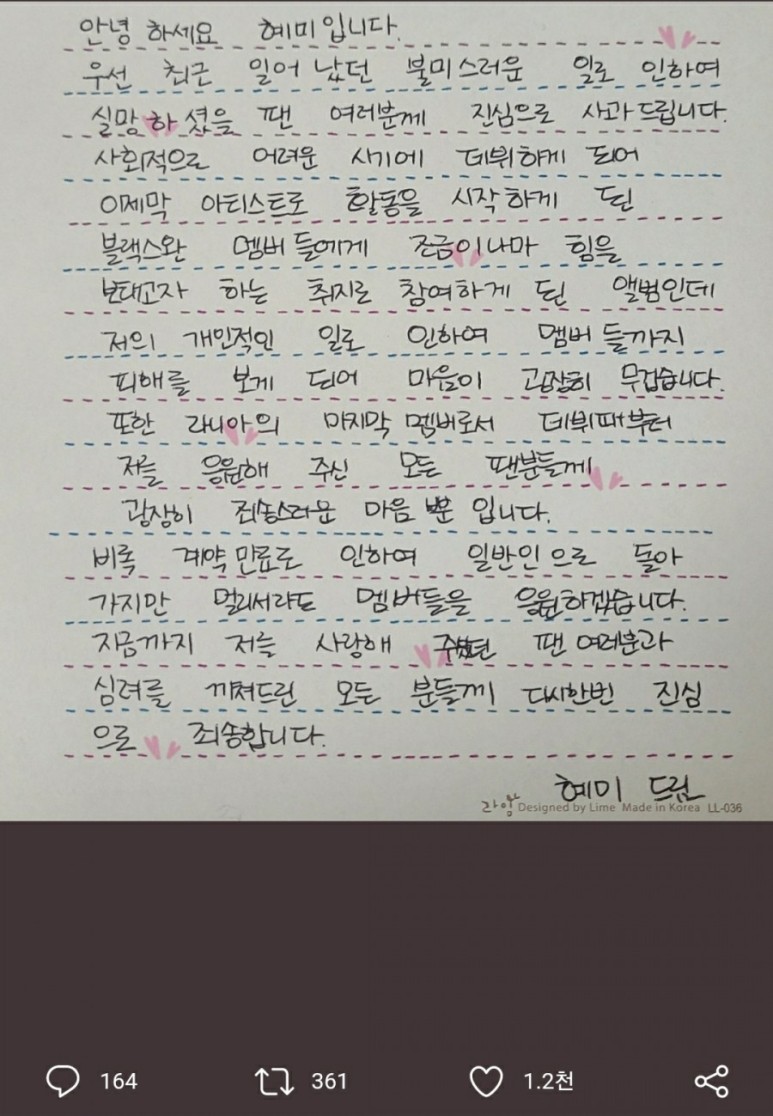 안녕 하세요 혜미입니다.
우선 최근 일어 났던 불미스러운 일로 인하여
실망하셨을 팬 여러분께 진심으로 사과드립니다.
사회적으로 어려운 시기에 데뷔하게 되어
이제막 아티스트로 활동을 시작하게 된
블랙스완 멤버들에게 조금이나마 힘을
보태고자 하는 취지로 참여하게 된 앨범인데
저의 개인적인 일로 인하여 멤버들까지
피해를 보게 되어 마음이 굉장히 무겁습니다.
또한 라니아의 마지막 멤버로서 데뷔때부터
저를 응원해 주신 모든 팬분들께
굉장히 죄송스러운 마음 뿐 입니다.
비록 계약만료로 인하여 일반인으로 돌아
가지만 멀리서라도 멤버들을 응원하겠습니다.
지금까지 저를 사랑해 주셨던 팬 여러분과
심려를 끼쳐드린 모든 분들께 다시한번 진심
으로 죄송합니다.
혜미 드림
라임 Designed by Lime Made in Korea LL-036
164 361 1.2천